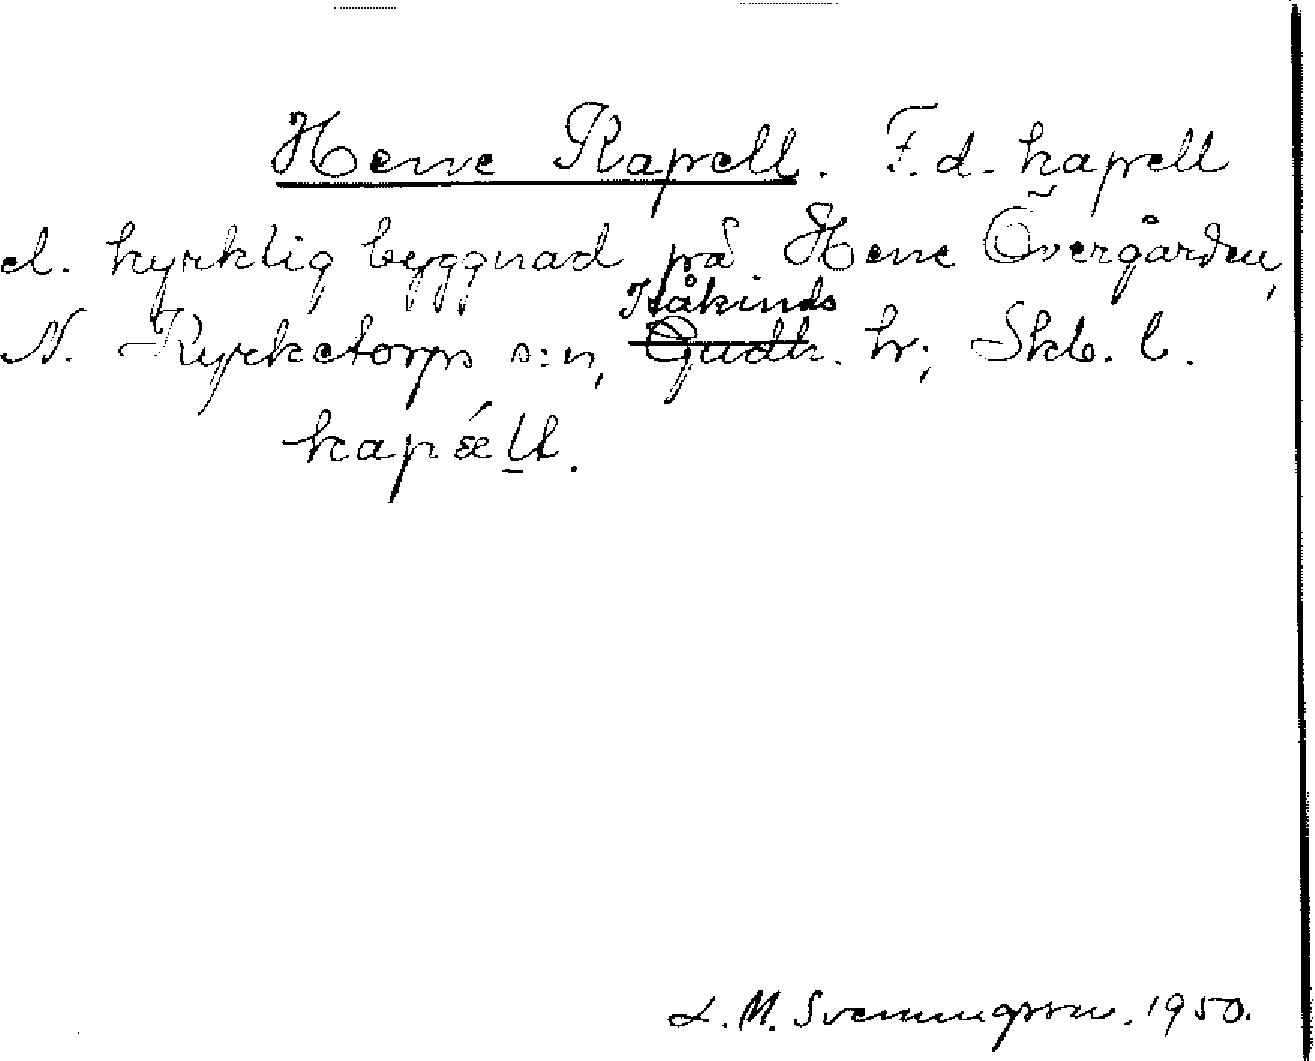 Hene Kapell. F.d. kapell
el. kyrklig byggnad på Hene Övergården,
N. Kyrketorps s:n, Kåkinds Gudh. hr; Skb. l.
kapäll.
L. M. Svenungsson. 1950.